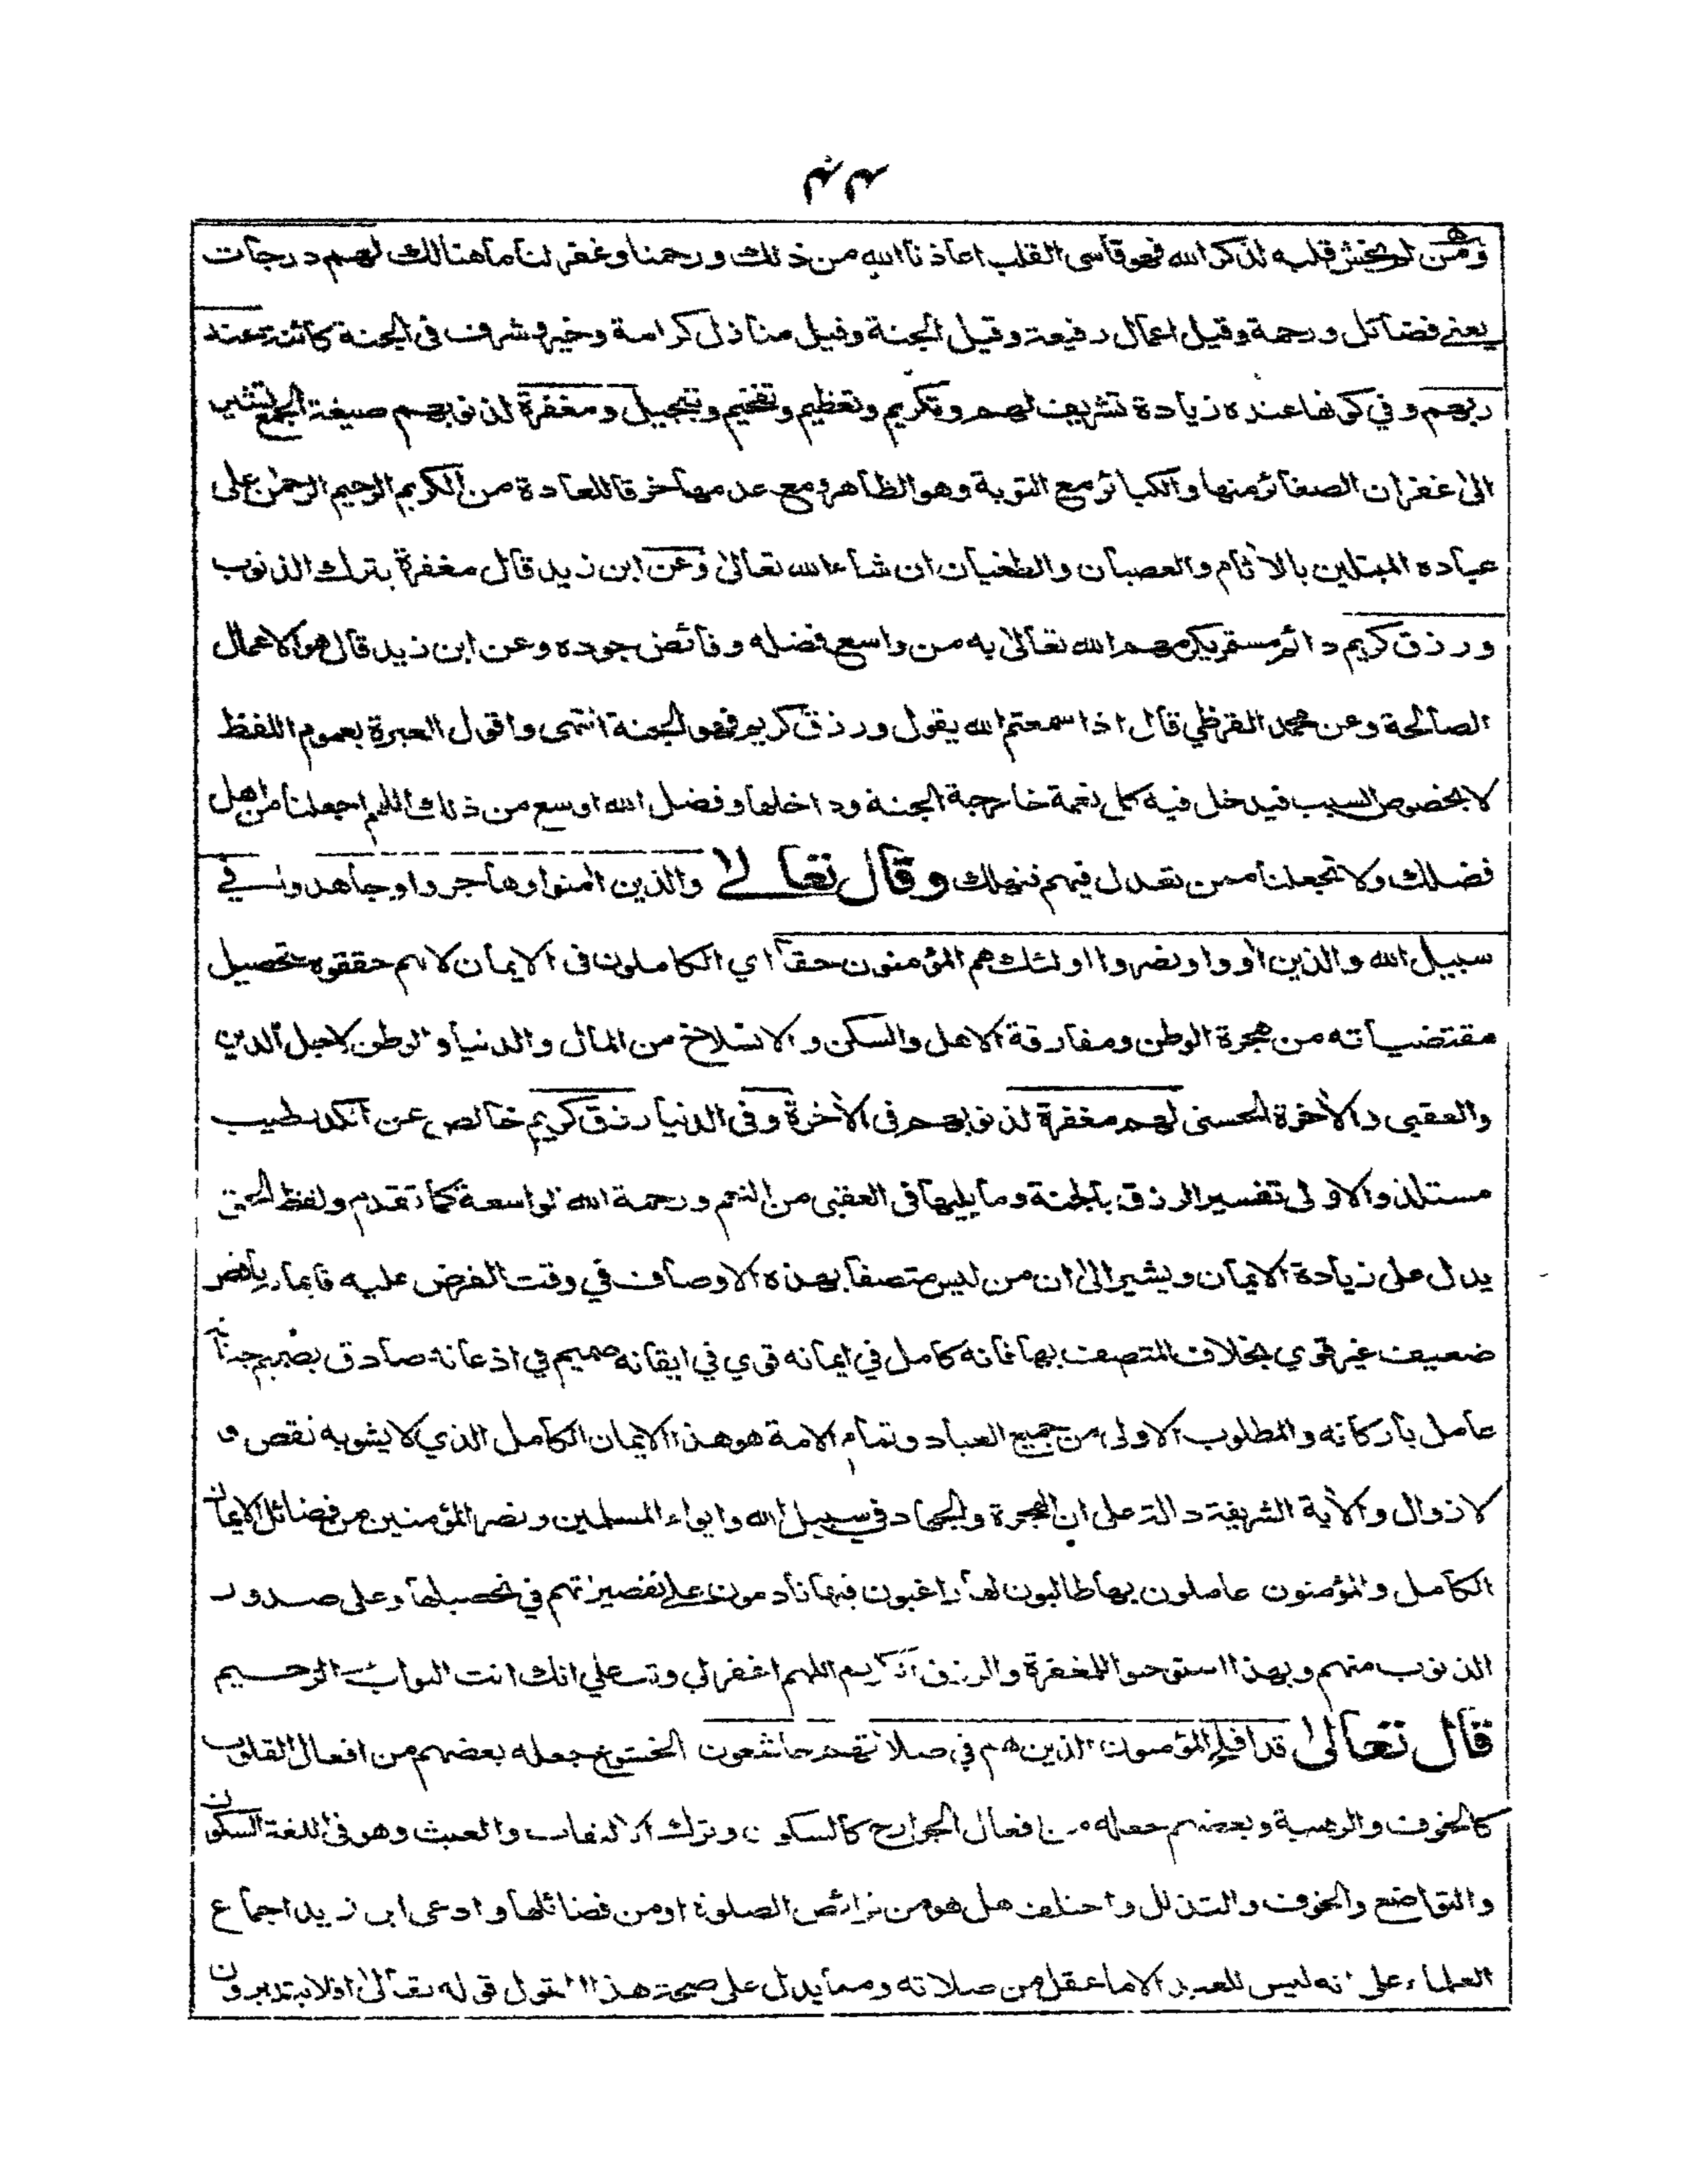 ومن لم يخش قلبه لذكر الله فهو قاسى القلب اعاذنا الله من ذلك ورحمنا وغفر لنا ما هنالك لهم درجات
يعني فضائل ورحمة وقيل اعمال رفيعة وقيل الجنة وقيل منازل كرامة وخير وشرف فى الجنة كائنة عند
ربهم وفي كونها عنده زيادة تشريف لهم وتكريم وتعظيم وتفخيم وتبجيل ومغفرة لذنوبهم صيغة الجمع تشير
الى غفران الصغائر منها والكبائر مع التوبة وهو الظاهر ومع عدمها خرقا للعادة من الكريم الرحيم الرحمن على
عباده المبتلين بالآثام والعصيان والطغيان ان شاء الله تعالى وعن ابن زيد قال مغفرة بترك الذنوب
ورزق كريم دائم مستمر يكرمهم الله تعالى به من واسع فضله وفائض جوده وعن ابن زيد قال هو الاعمال
الصالحة وعن محمد القرظي قال اذا سمعتم الله يقول ورزق كريم فهو الجنة انتهى واقول العبرة بعموم اللفظ
لا بخصوص السبب فيدخل فيه كل نعمة خارجة الجنة وداخلها وفضل الله اوسع من ذلك اللهم اجعلنا من اهل
فضلك ولا تجعلنا ممن تعدل فيهم فنهلك وقال تعالى والذين آمنوا وهاجروا وجاهدوا في
سبيل الله والذين آووا ونصروا اولئك هم المؤمنون حقا اي الكاملون فى الايمان لانهم حققوه بتحصيل
مقتضياته من هجرة الوطن ومفارقة الاهل والسكن والانسلاخ من المال والدنيا والوطن لاجل الدين
والعقبى والآخرة الحسنى لهم مغفرة لذنوبهم فى الآخرة وفى الدنيا رزق كريم خالص عن الكدر طيب
مستلذ والاولى تفسير الرزق بالجنة وما يليها فى العقبى من النعم ورحمة الله الواسعة كما تقدم ولفظ الحق
يدل على زيادة الايمان ويشير الى ان من ليس متصفا بهذه الاوصاف في وقت الفرض عليه فايمانه ناقص
ضعيف غير قوي بخلاف المتصف بها فانه كامل في ايمانه قوي في ايقانه صميم في اذعانه صادق بضميم جنانه
عامل باركانه والمطلوب الاولى من جميع العباد وتمام الامة هو هذا الايمان الكامل الذي لا يشوبه نقص و
لا زوال والآية الشريفة دالة على ان الهجرة والجهاد في سبيل الله وايواء المسلمين ونصر المؤمنين من فضائل الايمان
الكامل والمؤمنون عاملون بها طالبون لها راغبون فيها نادمون على تقصيراتهم في تحصيلها وعلى صدور
الذنوب منهم وبهذا استوجبوا المغفرة والرزق الكريم اللهم اغفر لي وتب علي انك انت التواب الرحيم
قال تعالى قد افلح المؤمنون الذين هم في صلاتهم خاشعون الخشوع جعله بعضهم من افعال القلوب
كالخوف والرهبة وبعضهم جعله من افعال الجوارح كالسكون وترك الالتفات والعبث وهو فى اللغة السكون
والتواضع والخوف والتذلل واختلف هل هو من فرائض الصلوة او من فضائلها وادعى ابن زيد اجماع
العلماء على انه ليس للعبد الا ما عقل من صلاته ومما يدل على صحة هذا القول قوله تعالى افلا يتدبرون